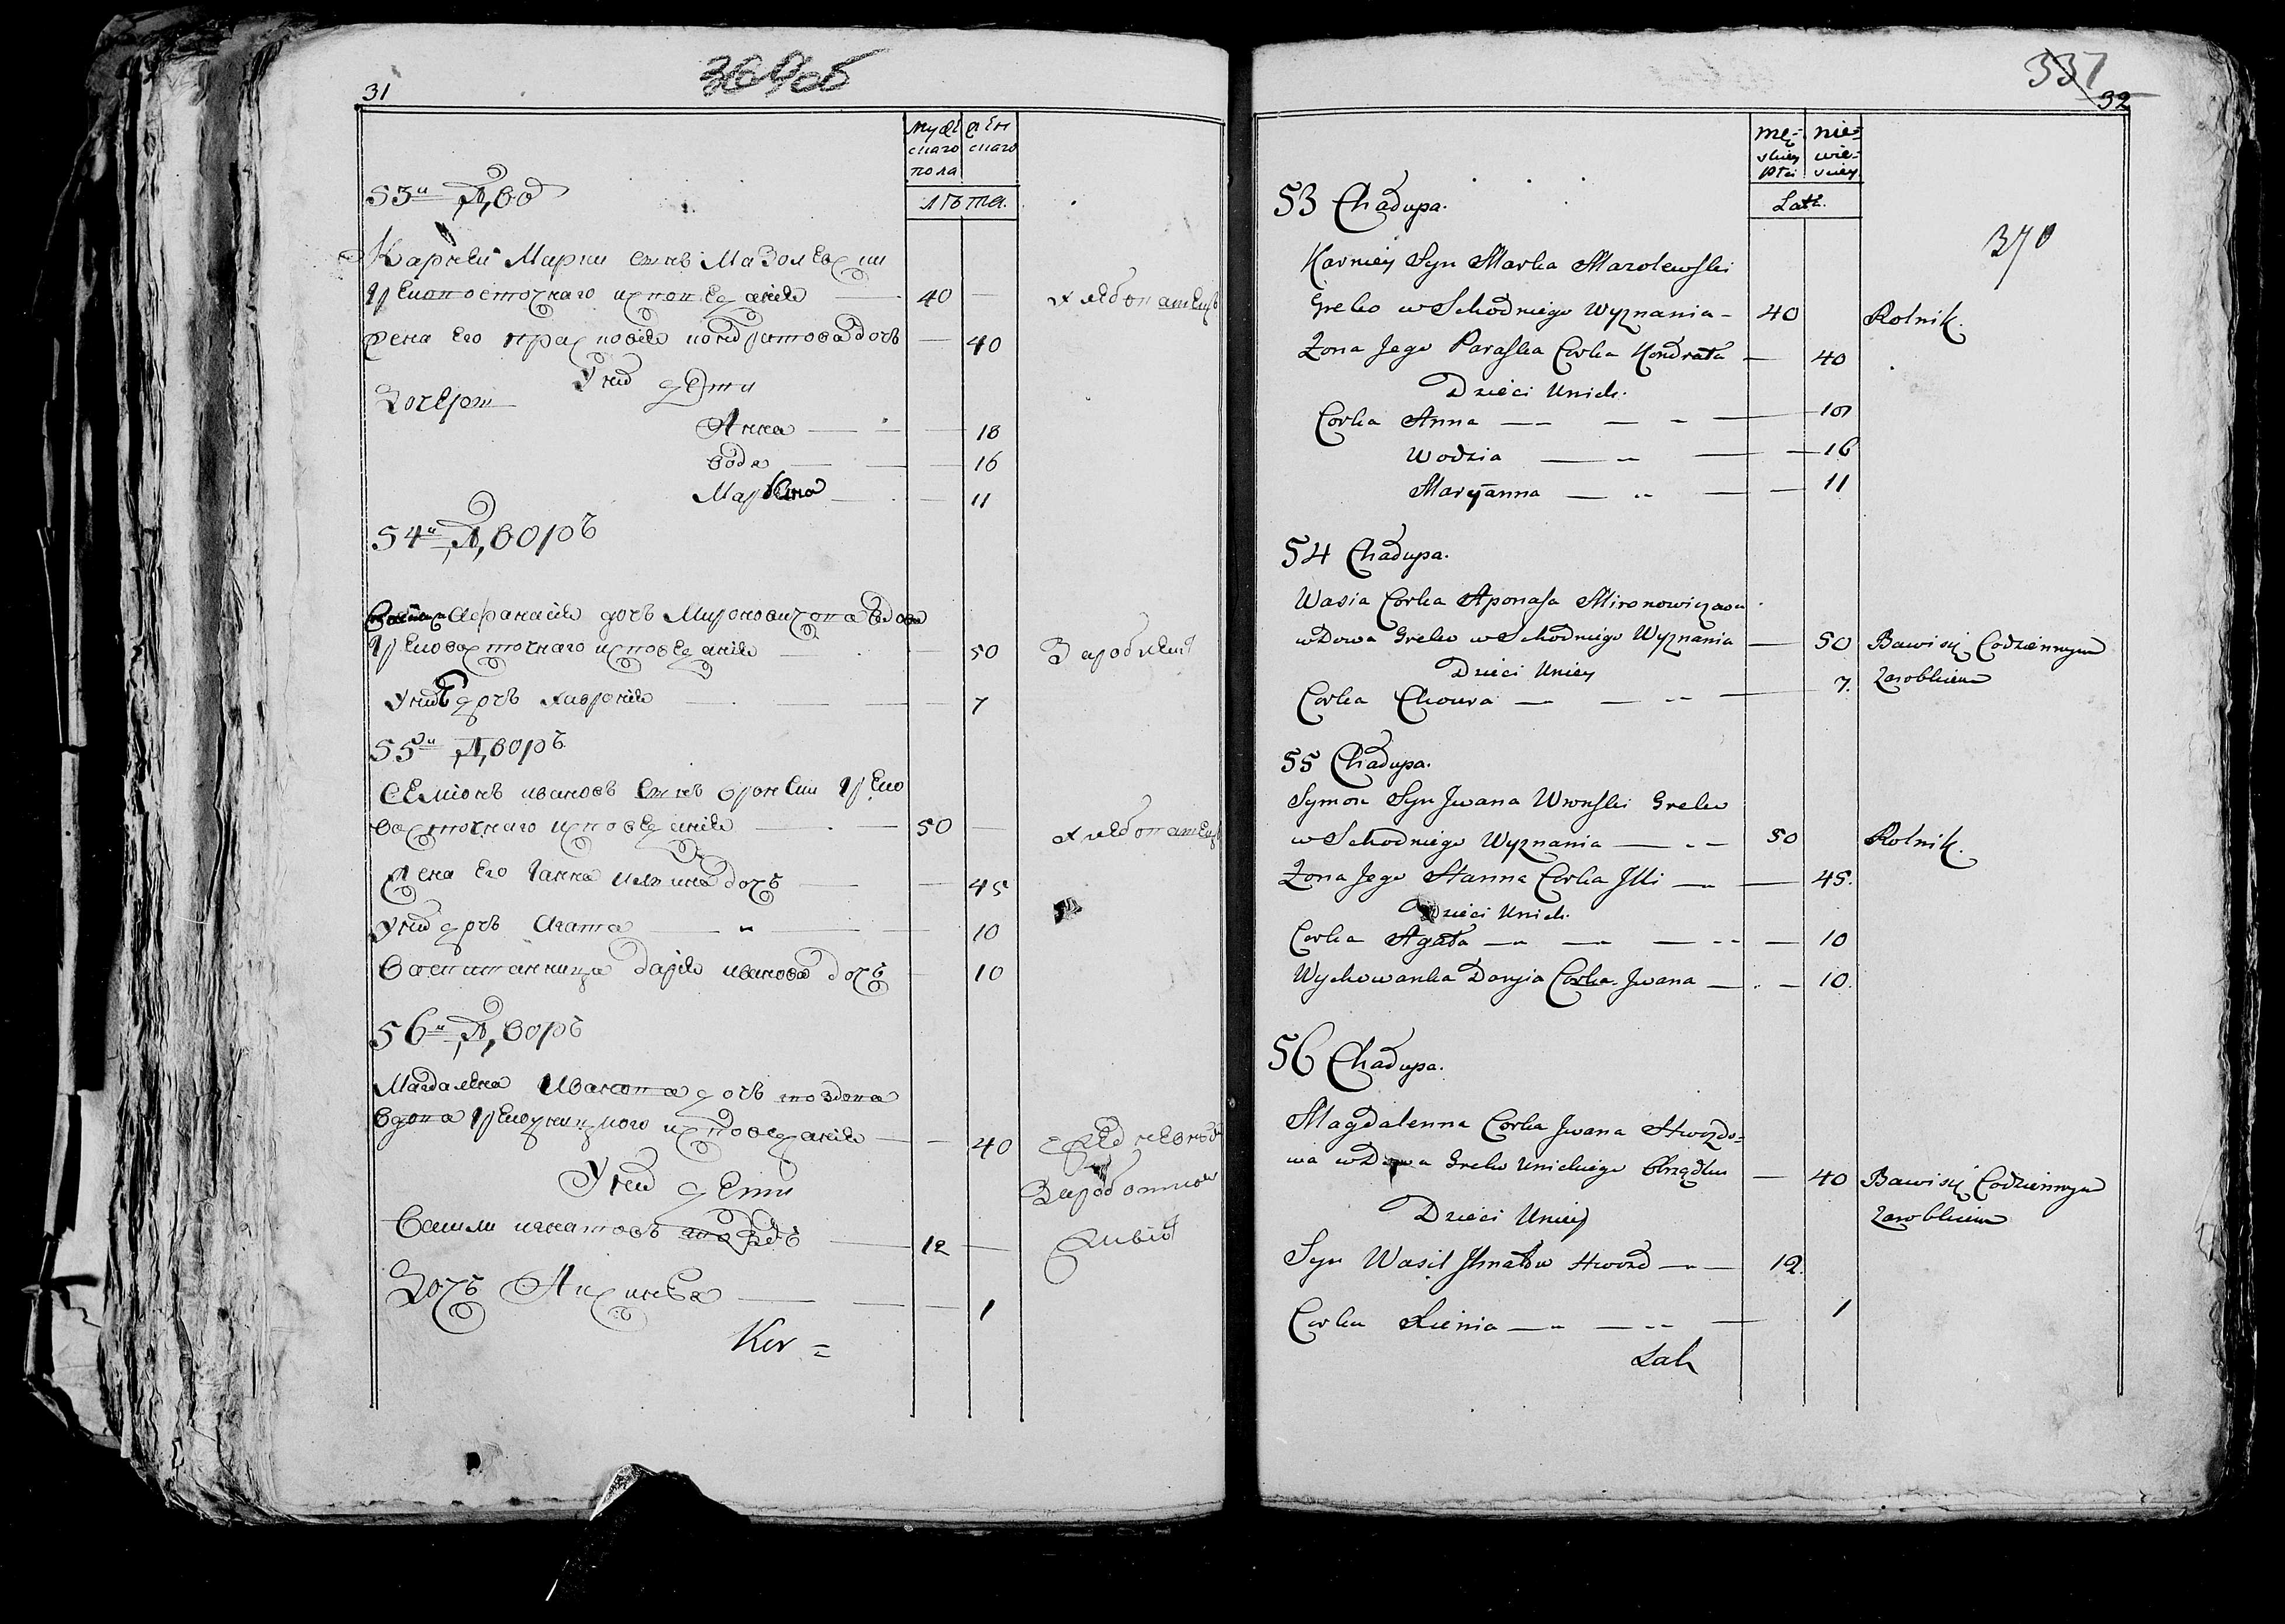 31
369об
мужескаго пола
женскаго
лѣта.
53й Двор
Карней Марки сынъ Мазолевский
Грековосточнаго исповедания — 40 — хлебопашец
жена его Прасковия Кондратова дочъ — 40
У них дети
Дочери
Анна — 18
Водя — 16
Марьяна — 11
54й Дворъ
Афанасия дочъ Мироновичова вдова
Греко восточнаго исповедания — 50
У ней дочъ Хиврония — 7
55й Дворъ
Семионъ Ивановъ сынъ Греко
восточнаго исповедания — 50 — хлебопашец
жена его Ганна Илина дочъ — 45
У них дочъ Агата — 10
Воспитанница Дария Иванова дочъ — 10
56й Дворъ
Магдалена Иванова дочъ гвоздова
вдова Грекоуницкого исповедания — 40
У ней дети
Васили Игнатовъ гвоздъ — 12
Дочъ — 1
337
32
męskiey płci
niewieściey
Lata.
370
53 Chałupa.
Karniey Syn Marka Mazolewski
Greko w Schodniego Wyznania — 40 Rolnik.
Zona Jego Paraska Corka Kondrata — 40
Dzieci Unich.
Corka Anna — 18
Wodzia — 16
Maryanna — 11
54 Chałupa.
Wasia Corka Aponasa Mironowiczowa
wdowa Greko w Schodniego Wyznania — 50 Bawi się Codziennym
Dzieci Uniey Zarobkiem
Corka Chowra — 7.
55 Chałupa.
Symon Syn Jwana Wronski Greko
w Schodniego Wyznania — 50 Rolnik.
Zona Jego Hanna Corka Jlli — 45.
Dzieci Unich.
Corka Agata — 10
Wychowanka Daryia Corka Jwana — 10.
56 Chałupa.
Magdalenna Corka Jwana Hwozdo=
wa wdowa Greko Unickiego Obrządku — 40 Bawi się Codziennym
Dzieci Uniey Zarobkiem
Syn Wasil Jhnatow Hwozd — 12.
Corka Xienia — 1